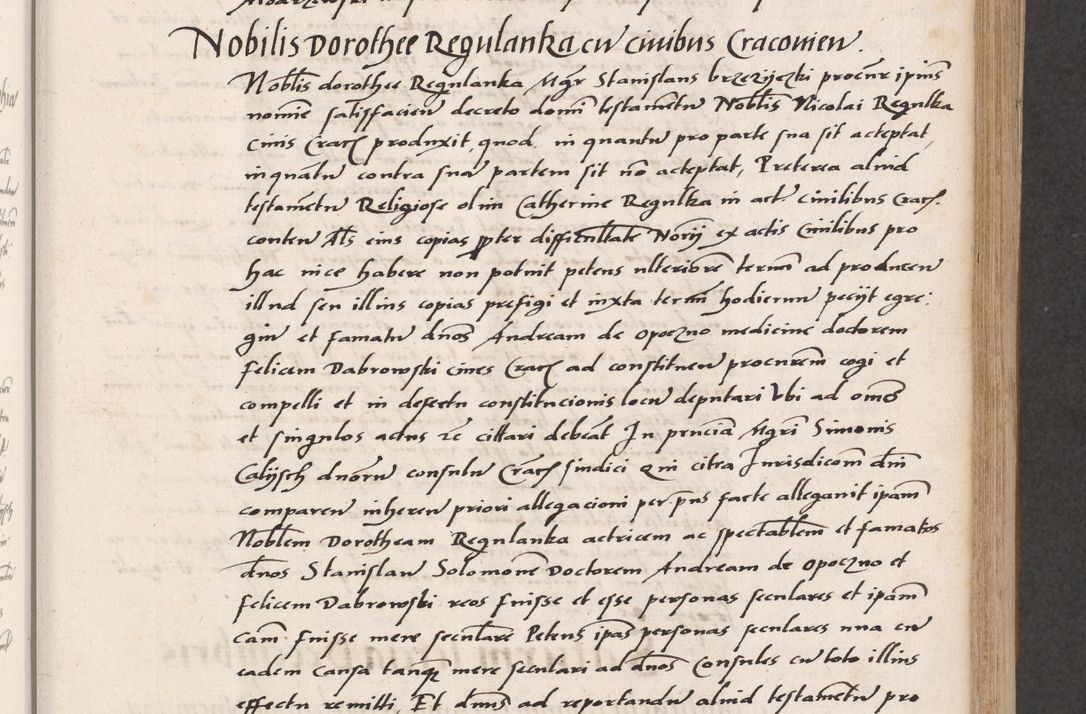 Nobilis Dorothee Regulanka cu civibus Cracovien.
Noblis dorothee Regulanka Mgr Stanislaus brzezijczki procur ipius
nomie satisfacien decreto domi testametu Noblis Nicolai Regulka
civis Crac produxit, quod in quantu pro parte sua sit acceptat,
inquatu contra sua partem sit no acceptat, Preterea aliud
testametu Religiose olim Catherine Regulka in act. civilibus Crac.
conten Als eius copias ppter difficultate Norij ex actis civilibus pro
hac vice habere non potuit petens ulteriore termi ad producen
illud seu illius copias prefigi et iuxta term hodiernu pecijt egre:
giu et famatu dnos Andream de Opoczno medicine doctorem
felicem Dabrowski cives Crac ad constituen procurem cogi et
compelli et in defectu constitucionis locu deputari Ubi ad omes
et singulos actus zc cittari debeat In pncia Mgri Simonis
Calijsch dnoru consulu Crac sindici Qui citra Jurisdicom dni
comparen inheren priori allegacioni per pns facte allegauit ipam
Noblem Dorotheam Regulanka actricem ac spectablem et famatos
dnos Stanislau Solomone Doctorem Andream de Opoczno et
felicem Dabrowski reos fuisse et esse personas seculares et ipam
cam fuisse mere seculare Petens ipas personas seculares una cu
eadem causa tanq mere seculari ad dnos Consules cu toto illius
effectu remitti, Et dnus ad reportandu aliud testametu pro